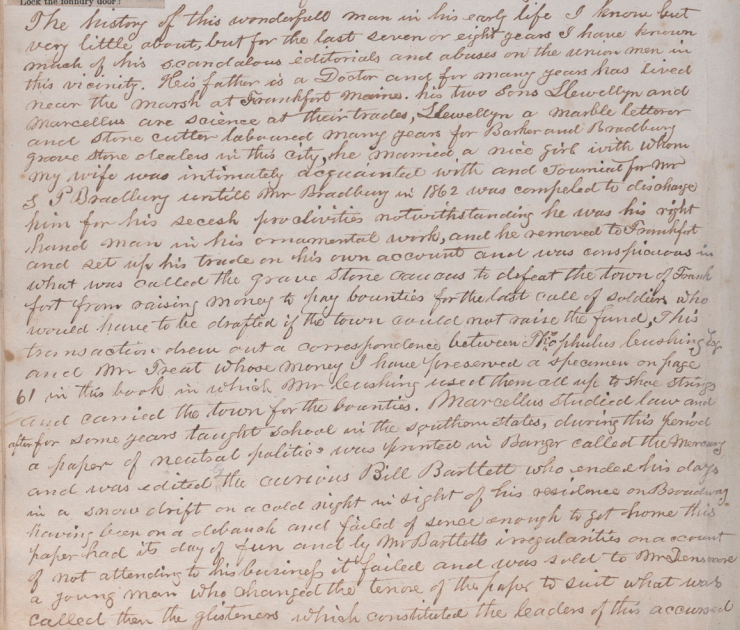 Lock the foundry door!
The history of this wonderfull man in his early life I know but
very little about, but for the last seven or eight years I have known
much of his scandalous editorials and abuses on the union men in
this vicinity. His father is a Doctor and for many years has lived
near the marsh at Frankfort Maine. his two Sons Llewellyn and
Marcellus are science at their trades, Llewellyn a marble letterer
and stone cutter laboured many years for Barker and Bradbury
grave stone dealers in this city, he married a nice girl with whom
my wife was intimately acquainted with and Journied for Mr
S P Bradbury untill Mr Bradbury in 1862 was compeled to discharge
him for his secesh proclivities notwithstanding he was his right
hand man in his ornamental work, and he removed to Frankfort
and set up his trade on his own account and was conspicuous in
what was called the grave stone caucus to defeat the town of Frank
fort from raising money to pay bounties for the last call of soldiers who
would have to be drafted if the town could not raise the fund, This
transaction drew out a correspondence between Theophulus Cushing Esq
and Mr Treat whose money I have preserved a specimen on page
61 in this book in which Mr Cushing used them all up to shoe strings
and carried the town for the bounties. Marcellus studied law and
after for some years taught school in the southern states, during this period
a paper of neutral politics was printed in Bangor called the Mercury
and was edited the curious Bill Bartlett who ended his days
in a snow drift on a cold night in sight of his residence on Broadway
having been on a debauch and failed of sence enough to get home this
paper had its day of fun and by Mr Bartletts irregularities on account
of not attending to his business it failed and was sold to Mr Densmore
a young man who changed the tenor of the paper to suit what was
called then the glisteners which constituted the leaders of this accursed